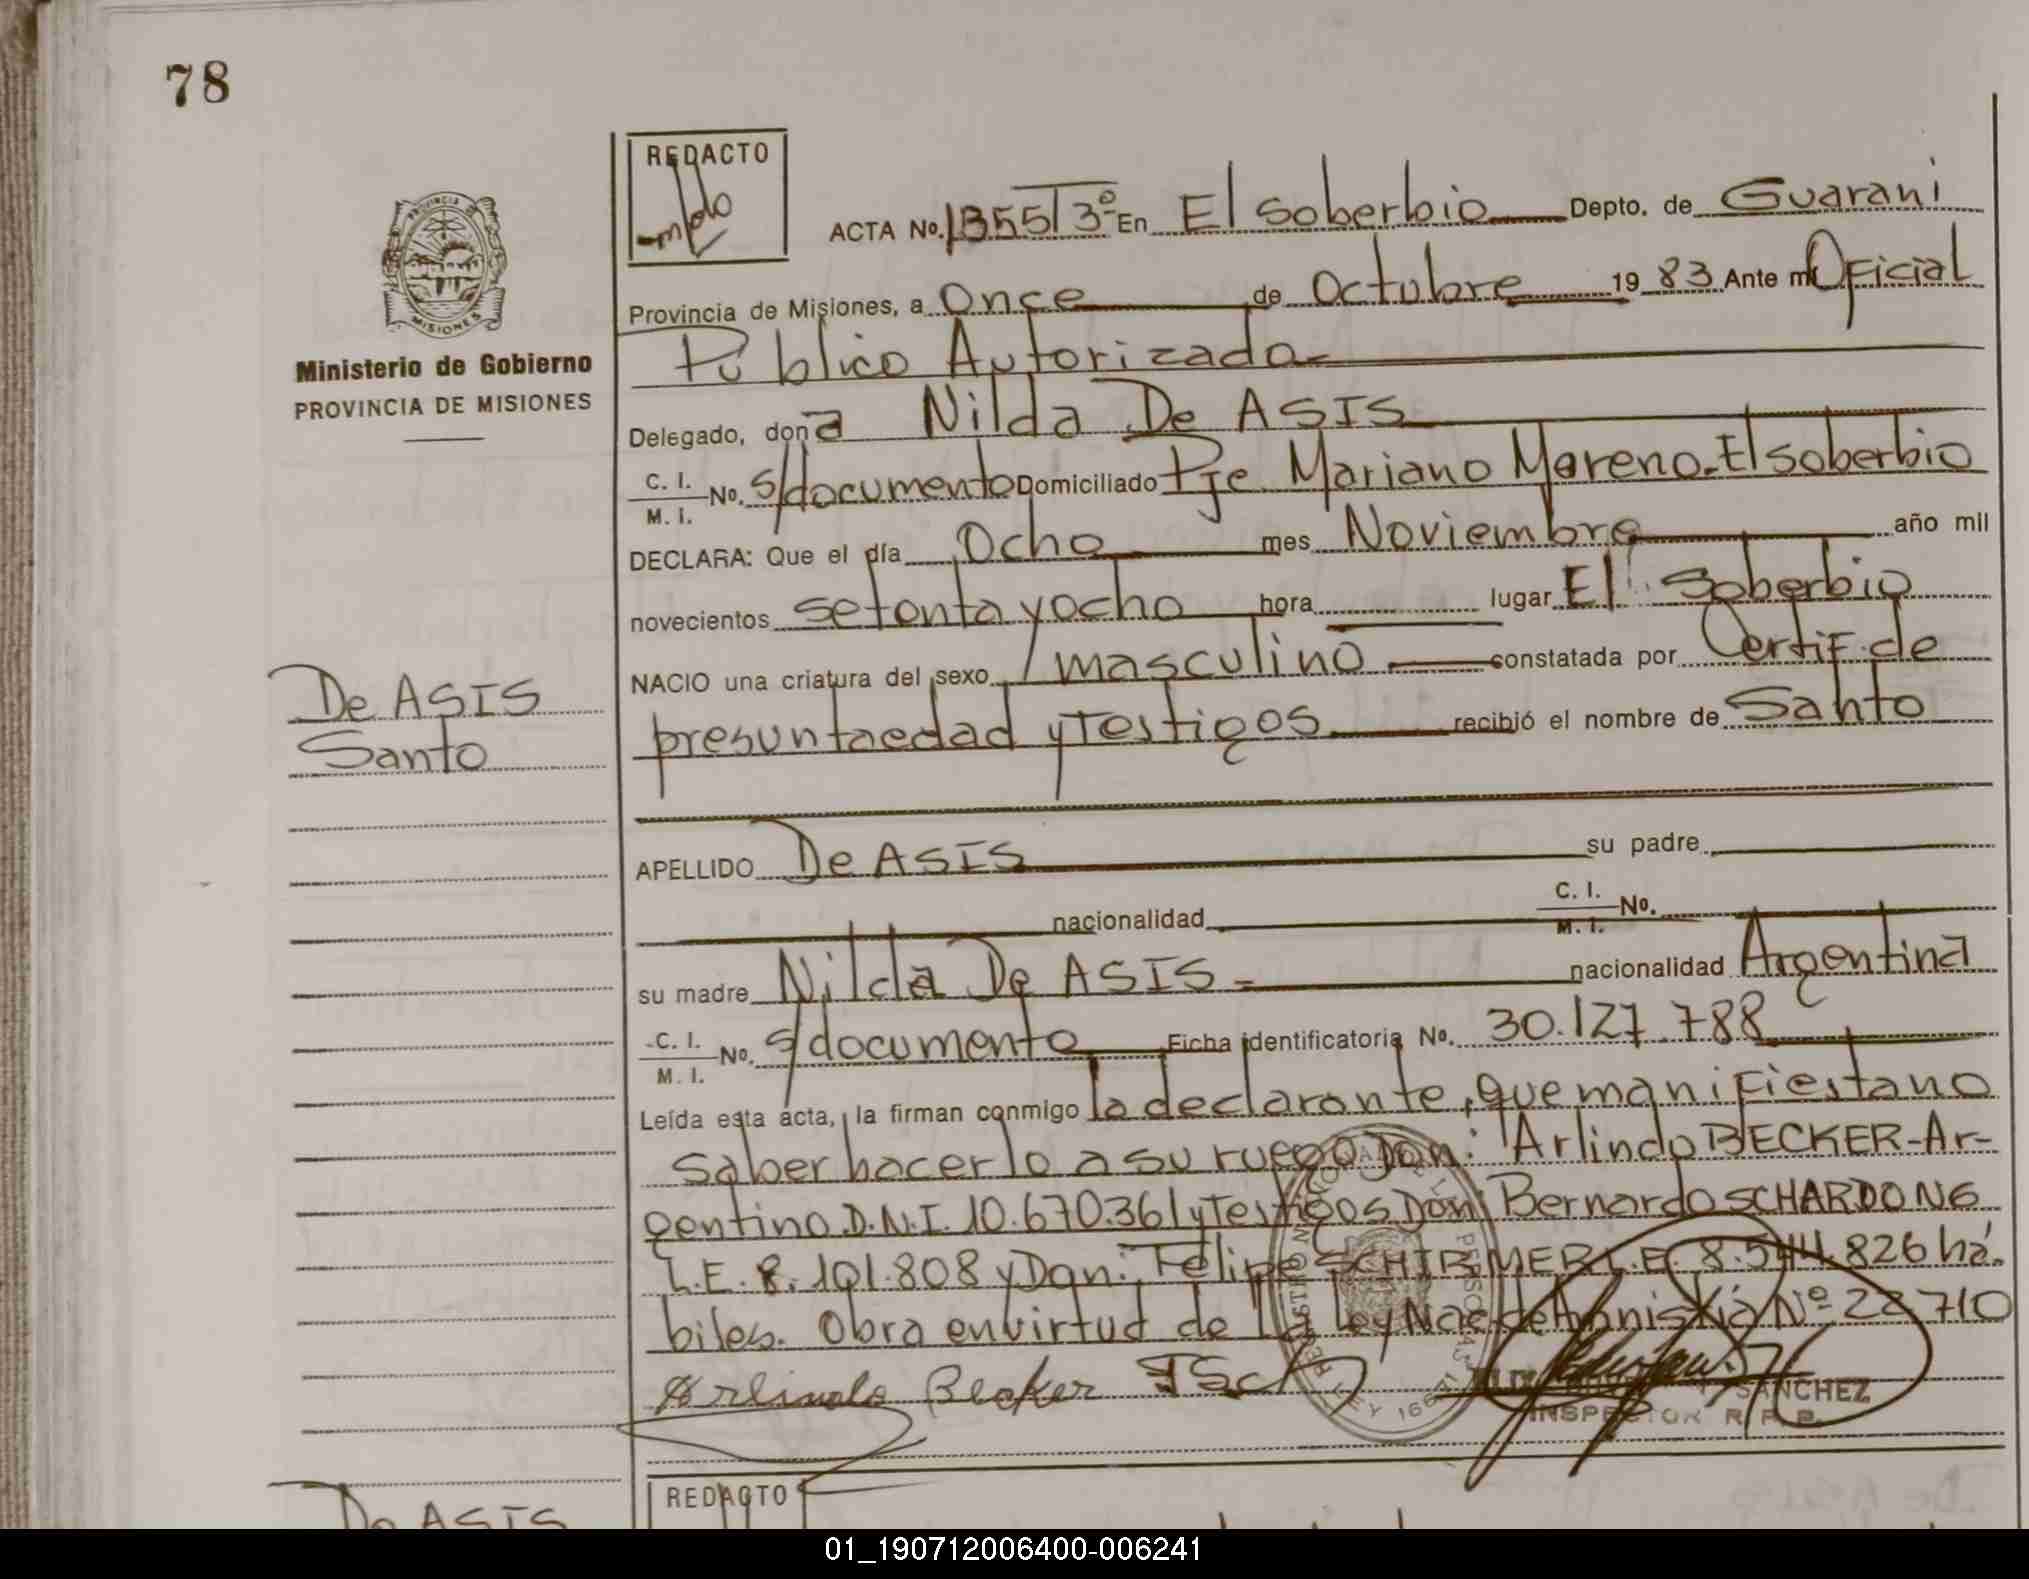 78
REDACTO
ACTA No. 1355 T 3º En El Soberbio Depto. de Guarani
Provincia de Misiones, a Once de Octubre 19 83 Ante mi Oficial
Público Autorizada
Ministerio de Gobierno
PROVINCIA DE MISIONES
PROVINCIA DE MISIONES
Delegado, don a Nilda De ASIS
C. I. M. I. No. s/documento Domiciliado Pje. Mariano Moreno. El soberbio
DECLARA: Que el día Ocho mes Noviembre año mil
novecientos setenta y ocho hora lugar El Soberbio
NACIO una criatura del sexo masculino constatada por Certif. de
De ASIS
Santo
presunta edad y Testigos recibió el nombre de Santo
APELLIDO De ASIS su padre
nacionalidad C. I. M. I. No.
su madre Nilda De ASIS nacionalidad Argentina
C. I. M. I. No. s/documento Ficha identificatoria No. 30.127.788
Leída esta acta, la firman conmigo la declarante, que manifiesta no
saber hacerlo a su ruego Don: Arlindo BECKER-Ar-
gentino D.N.I. 10.670.361 y Testigos Don: Bernardo SCHARDONG
L.E. 8.101.808 y Don: Felipe SCHIRMER L.E. 8.544.826 há-
biles. Obra en virtud de la Ley Nac. de Amnistía Nº 22.710
Arlindo Becker
SANCHEZ
INSPECTOR R. P. P.
De ASIS
REDACTO
01_190712006400-006241